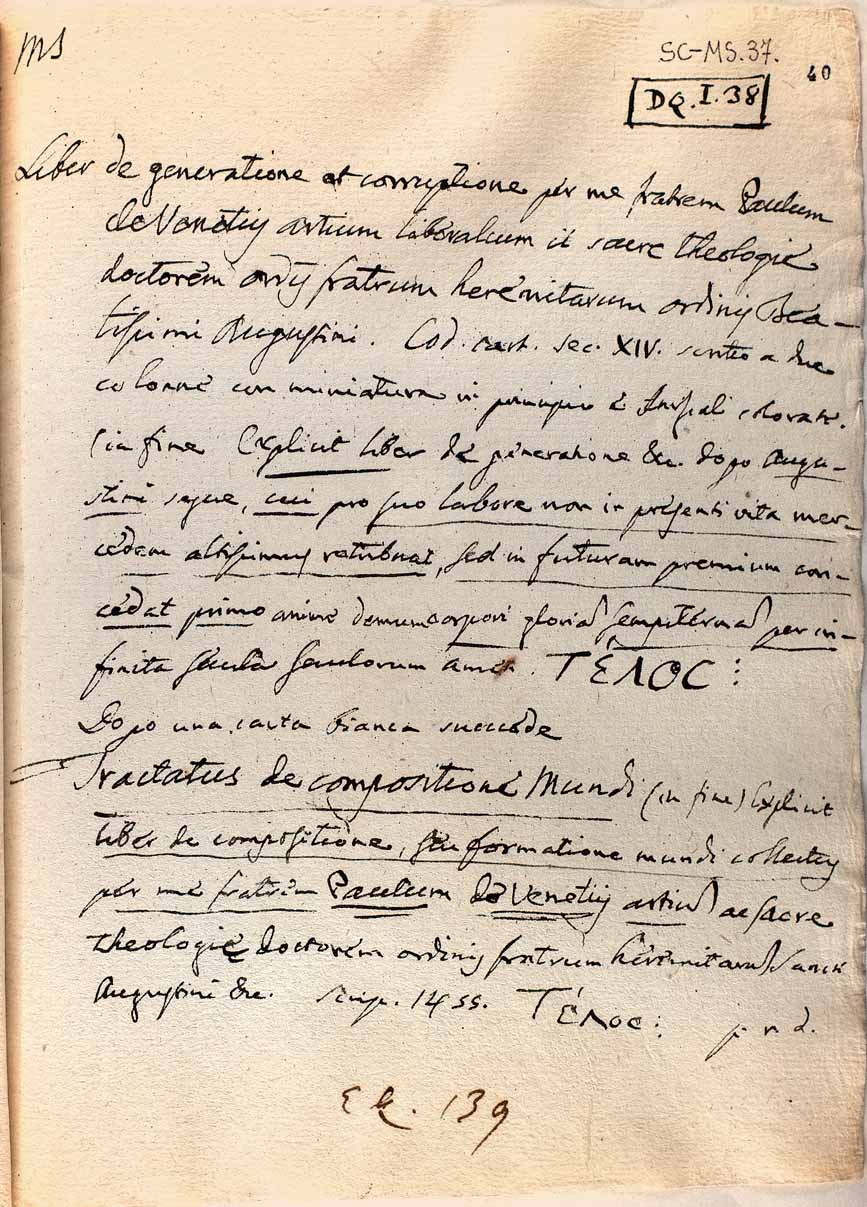 MS
SC-MS.37.
40
DQ.I.38
Liber de generatione et corruptione per me fratrem Paulum
de Venetijs artium liberalium it sacre theologie
doctorem ordĳ fratrum heremitarum ordinis Bea-
tissimi Augustini. Cod. cart. sec. XIV. scritto a due
colonne con miniatura in principio e Iniziali colorate.
(in fine Explicit liber de generatione &c. dopo Augu-
stini segue, cui pro suo labore non in presenti vita mer-
cedem altissimus retribuat, sed in futuram premium con-
cedat primo anime demum corpori gloriā sempiternā per in-
finita secula seculorum amen. ΤΈΛΟC :
Dopo una carta bianca succede
Tractatus de compositione Mundi (in fine) Explicit
liber de compositione, seu formatione mundi collectus
per me fratrem Paulum de Venetijs artiū ac sacre
theologie doctorem ordinis fratrum heremitarū Sancti
Augustini &c. scrip. 1455. ΤΈΛΟC :
p. n. 2.
139